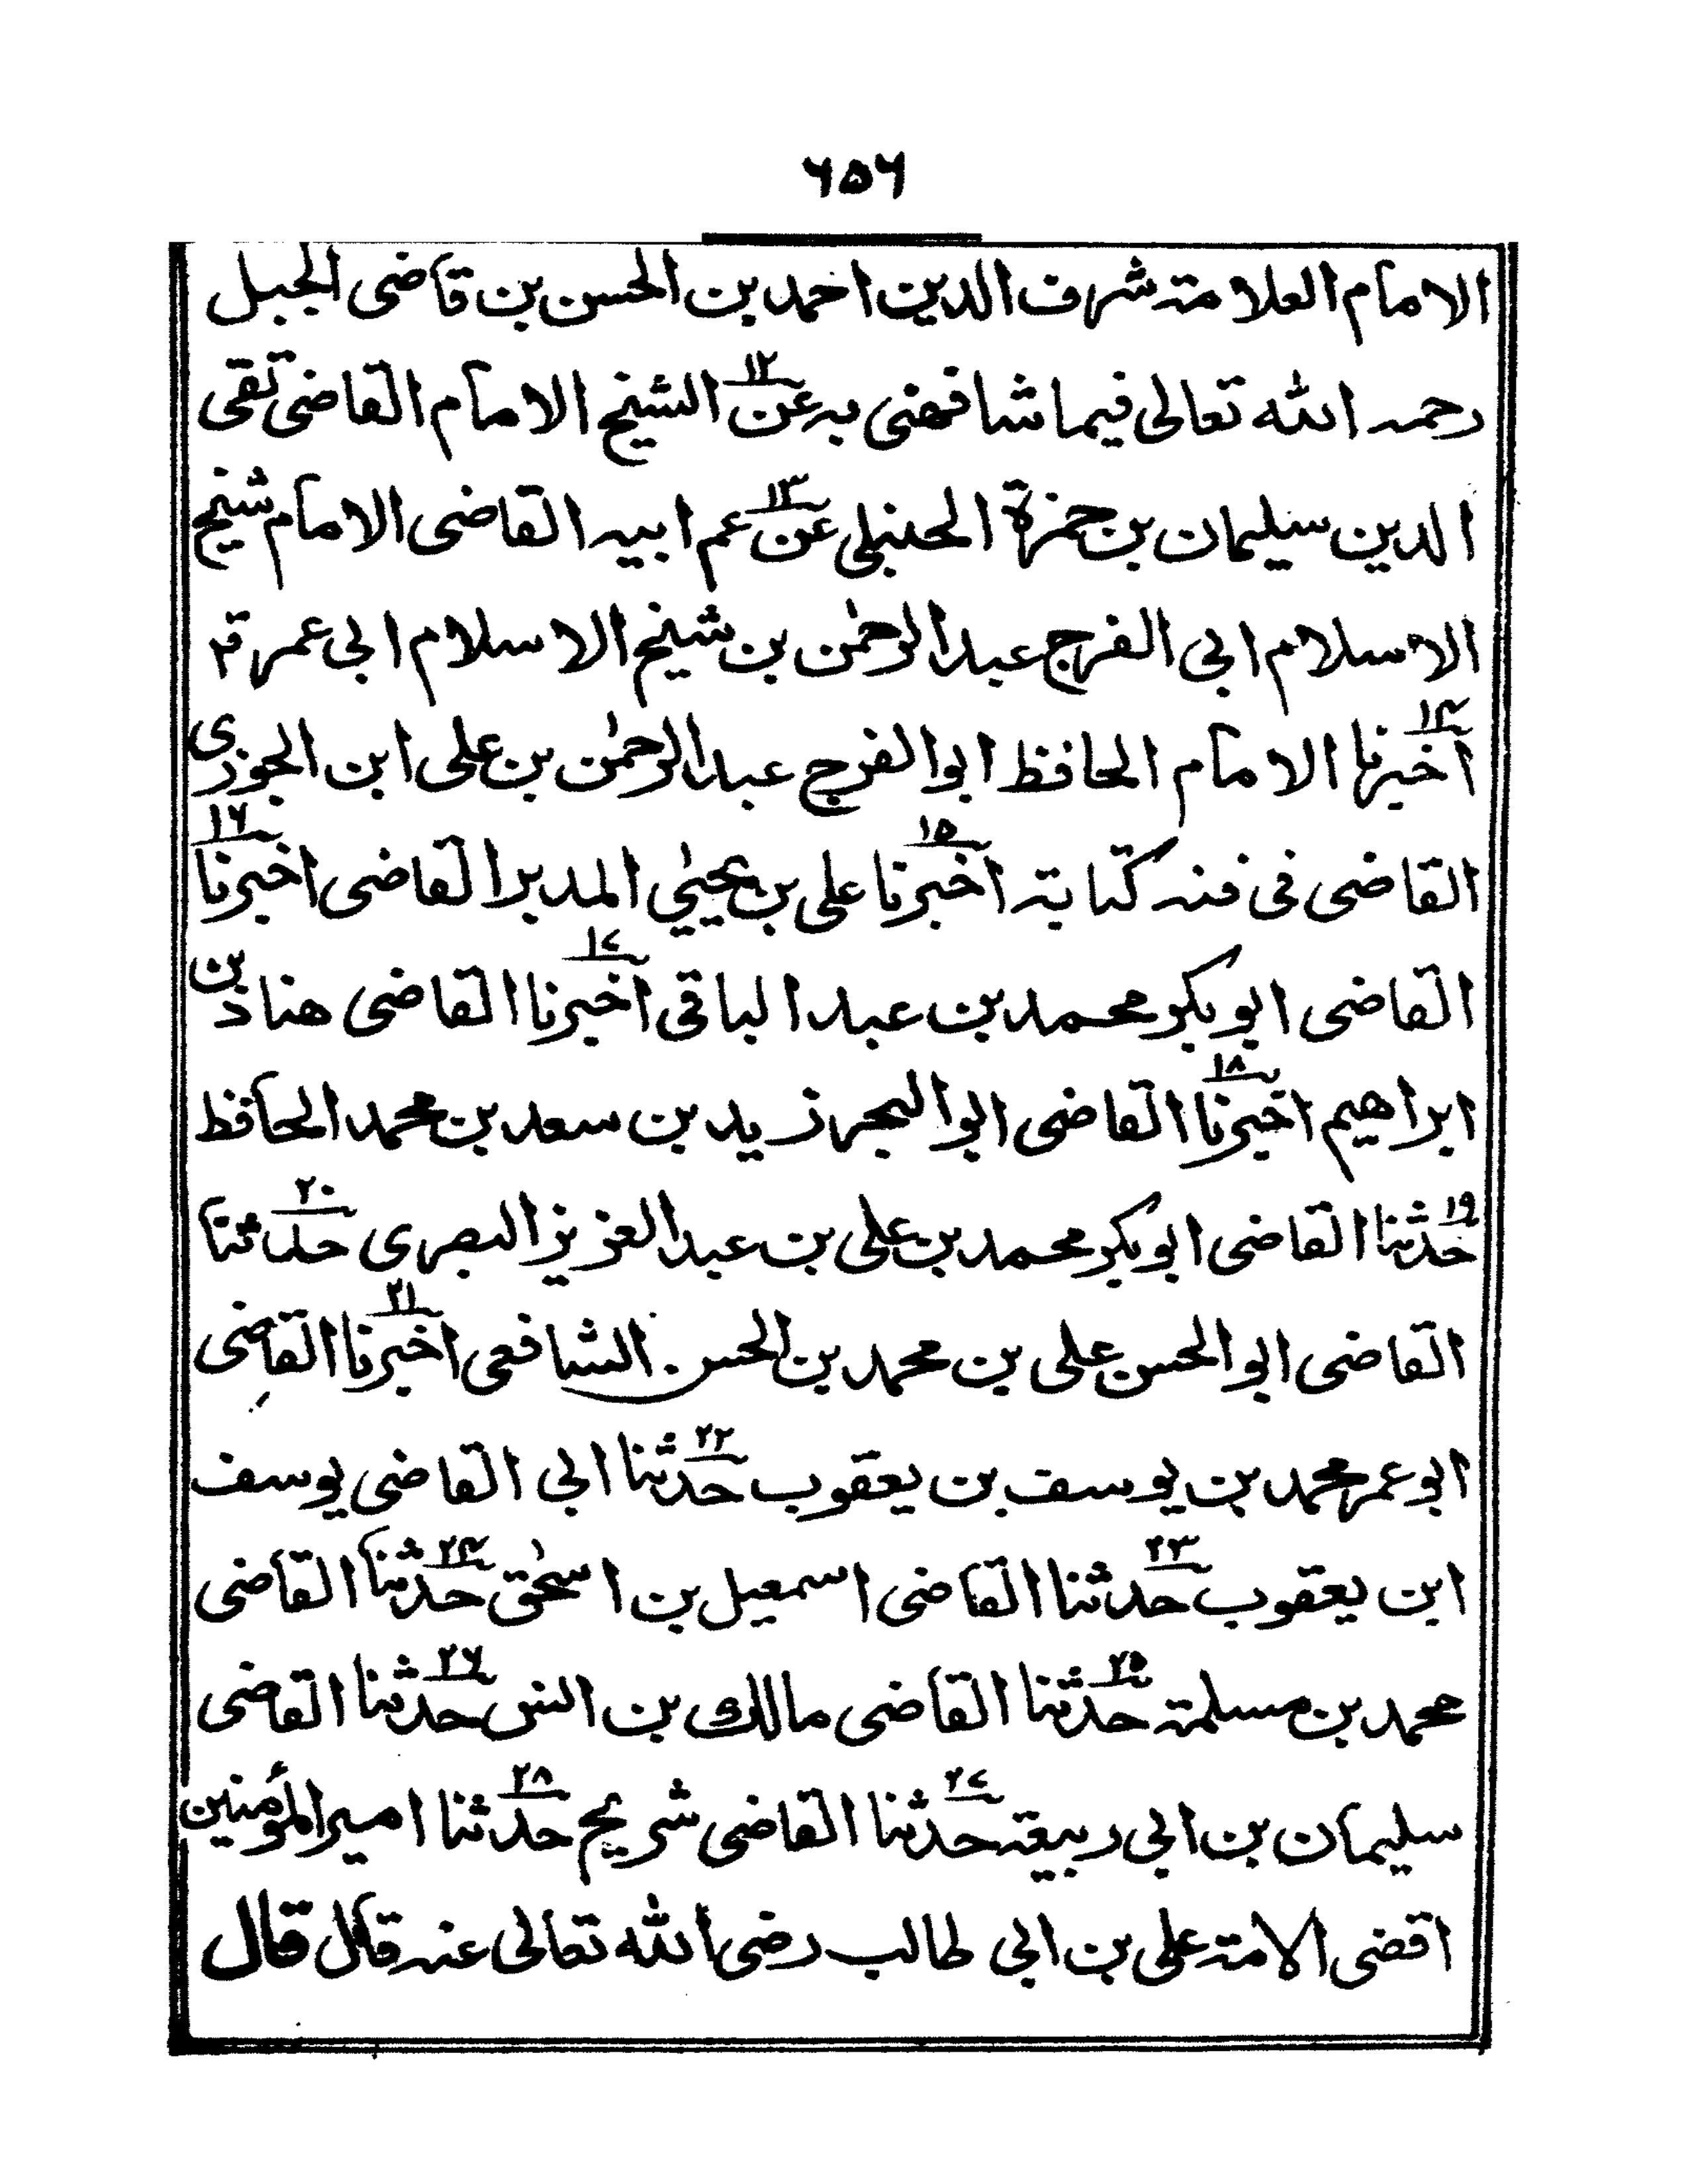 ۶۵۶
الامام العلامۃ شرف الدین احمد بن الحسن بن قاضی الجبل
رحمہ اللہ تعالی فیما شافھنی بہ عن۱۲ الشیخ الامام القاضی تقی
الدین سلیمان بن حمزۃ الحنبلی عن۱۳ عم ابیہ القاضی الامام شیخ
الاسلام ابی الفرج عبد الرحمٰن بن شیخ الاسلام ابی عمر
اخبرنا۱۴ الامام الحافظ ابو الفرج عبد الرحمٰن بن علی ابن الجوزی
القاضی فی فنہ کتابتہ اخبرنا۱۵ علی بن یحییٰ المدیر القاضی اخبرنا۱۶
القاضی ابو بکر محمد بن عبد الباقی اخبرنا۱۷ القاضی ھناد بن
ابراھیم اخبرنا۱۸ القاضی ابو البحر زید بن سعد بن محمد الحافظ
حدثنا۱۹ القاضی ابو بکر محمد بن علی بن عبد العزیز البصری حدثنا۲۰
القاضی ابو الحسن علی بن محمد بن الحسن الشافعی اخبرنا۲۱ القاضی
ابو عمر محمد بن یوسف بن یعقوب حدثنا۲۲ ابی القاضی یوسف
ابن یعقوب حدثنا۲۳ القاضی اسمعیل بن اسحٰق حدثنا۲۴ القاضی
محمد بن مسلمۃ حدثنا۲۵ القاضی مالک بن انس حدثنا۲۶ القاضی
سلیمان بن ابی ربیعۃ حدثنا۲۷ القاضی شریح حدثنا۲۸ امیر المؤمنین
اقضی الامۃ علی بن ابی طالب رضی اللہ تعالی عنہ قال قال